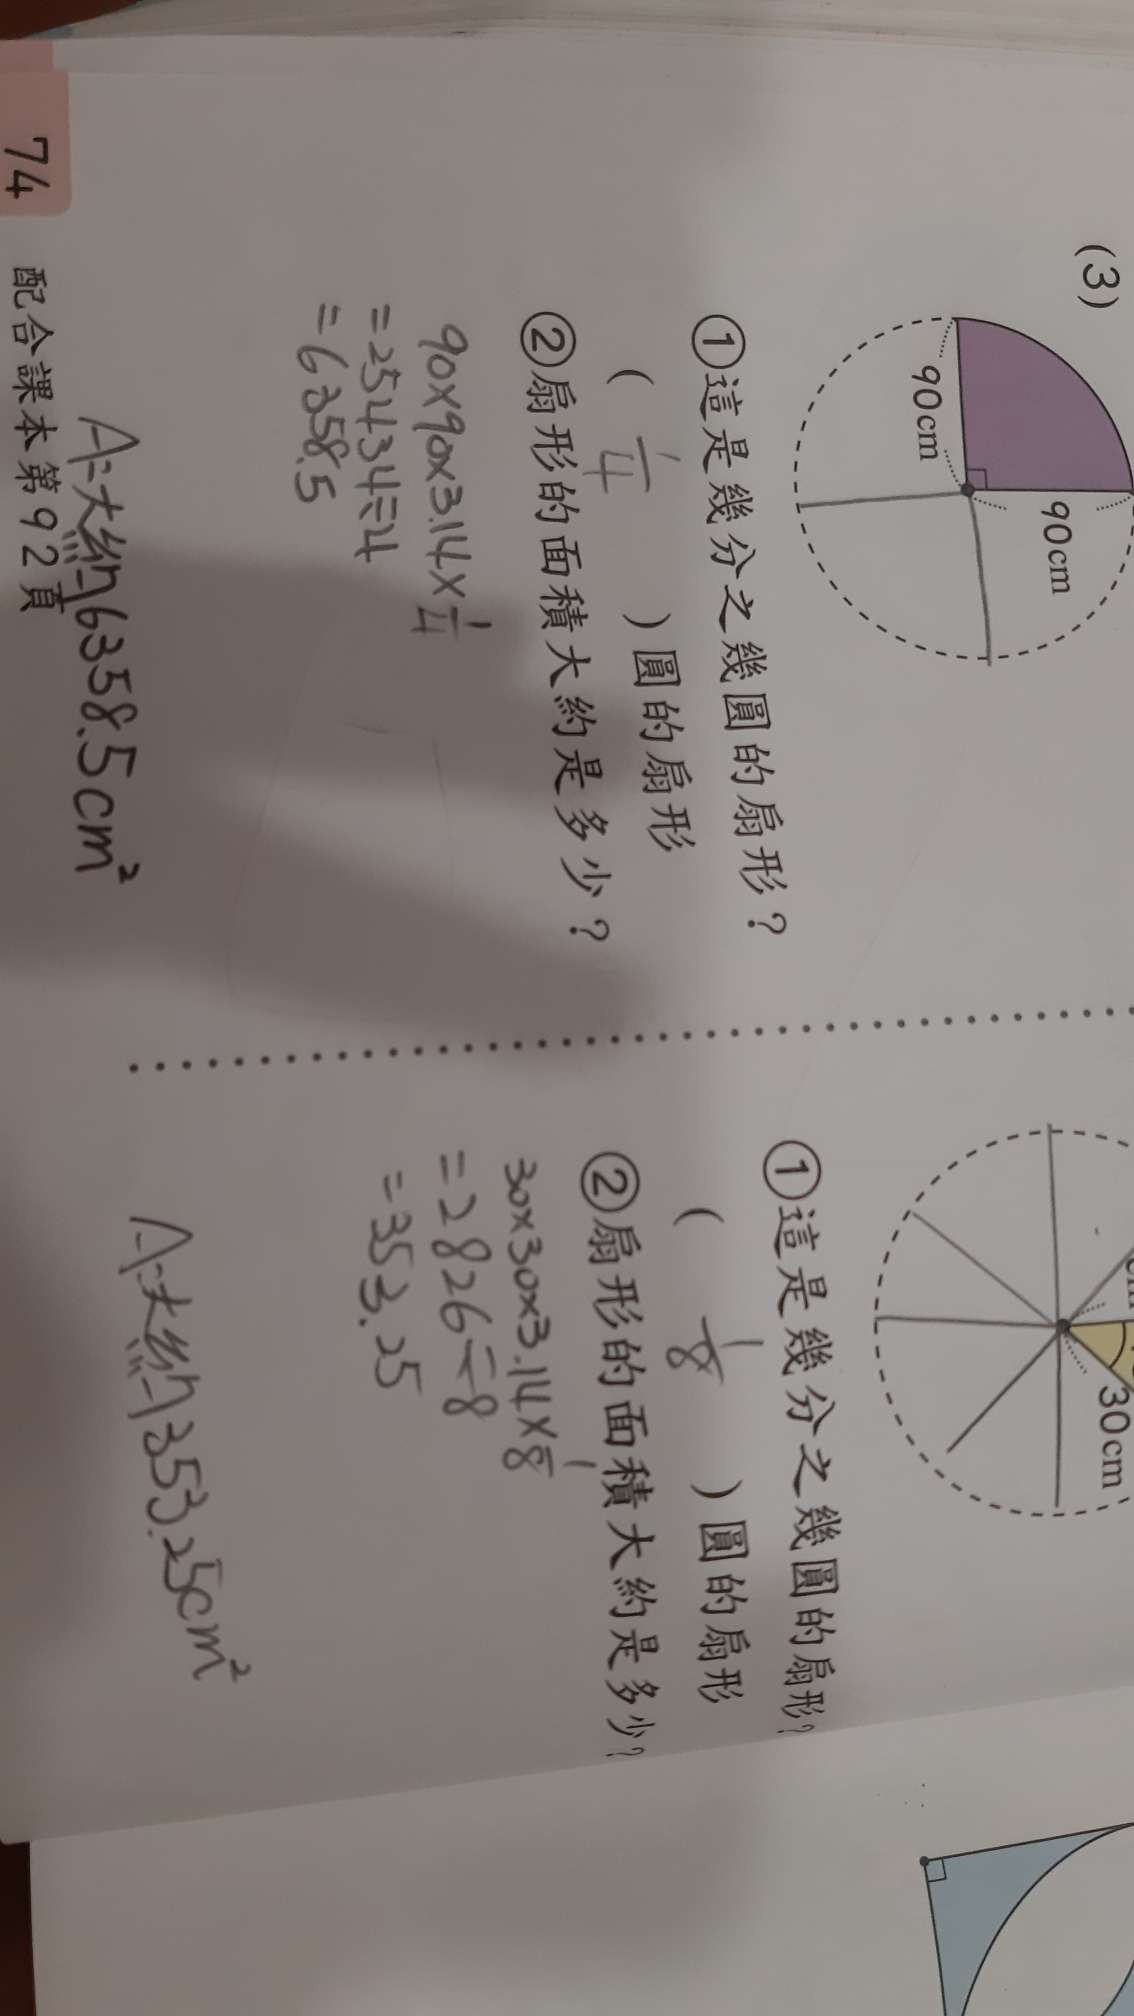 (3)
90cm
90cm
①這是幾分之幾圓的扇形？
( 1/4 )圓的扇形
②扇形的面積大約是多少？
90×90×3.14×1/4
=25434÷4
=6358.5
A:大約6358.5cm²
30cm
①這是幾分之幾圓的扇形？
( 1/8 )圓的扇形
②扇形的面積大約是多少？
30×30×3.14×1/8
=2826÷8
=353.25
A:大約353.25cm²
74 配合課本第92頁